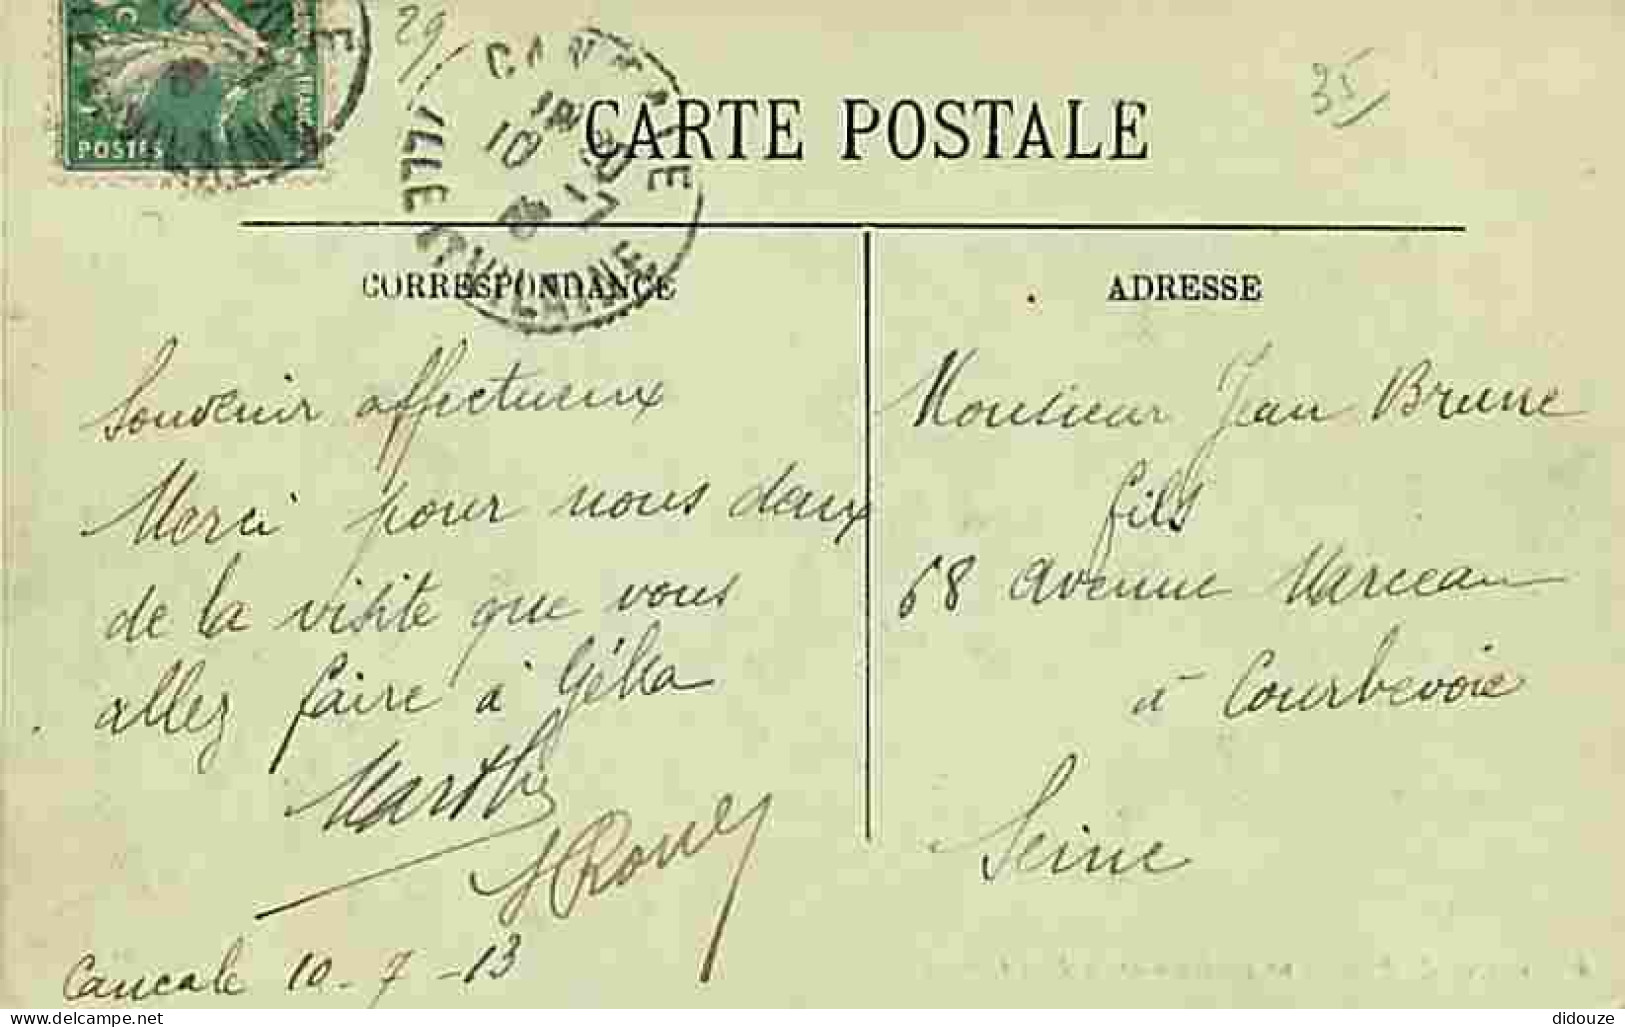 POSTES
29
CANCALE
ILLE
VILAINE
35
CARTE POSTALE
CORRESPONDANCE
Souvenir affectueux
Merci pour nous deux
de la visite que vous
allez faire à
Marthe
Cancale 10-7-13
ADRESSE
Monsieur Jean Brune
fils
68 avenue Marceau
à Courbevoie
Seine
www.delcampe.net
didouze